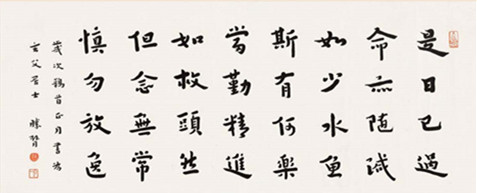 是日已過
命亦隨減
如少水魚
斯有何樂
當勤精進
如救頭然
但念無常
慎勿放逸
歲次鶉首正月書於
玄父居士